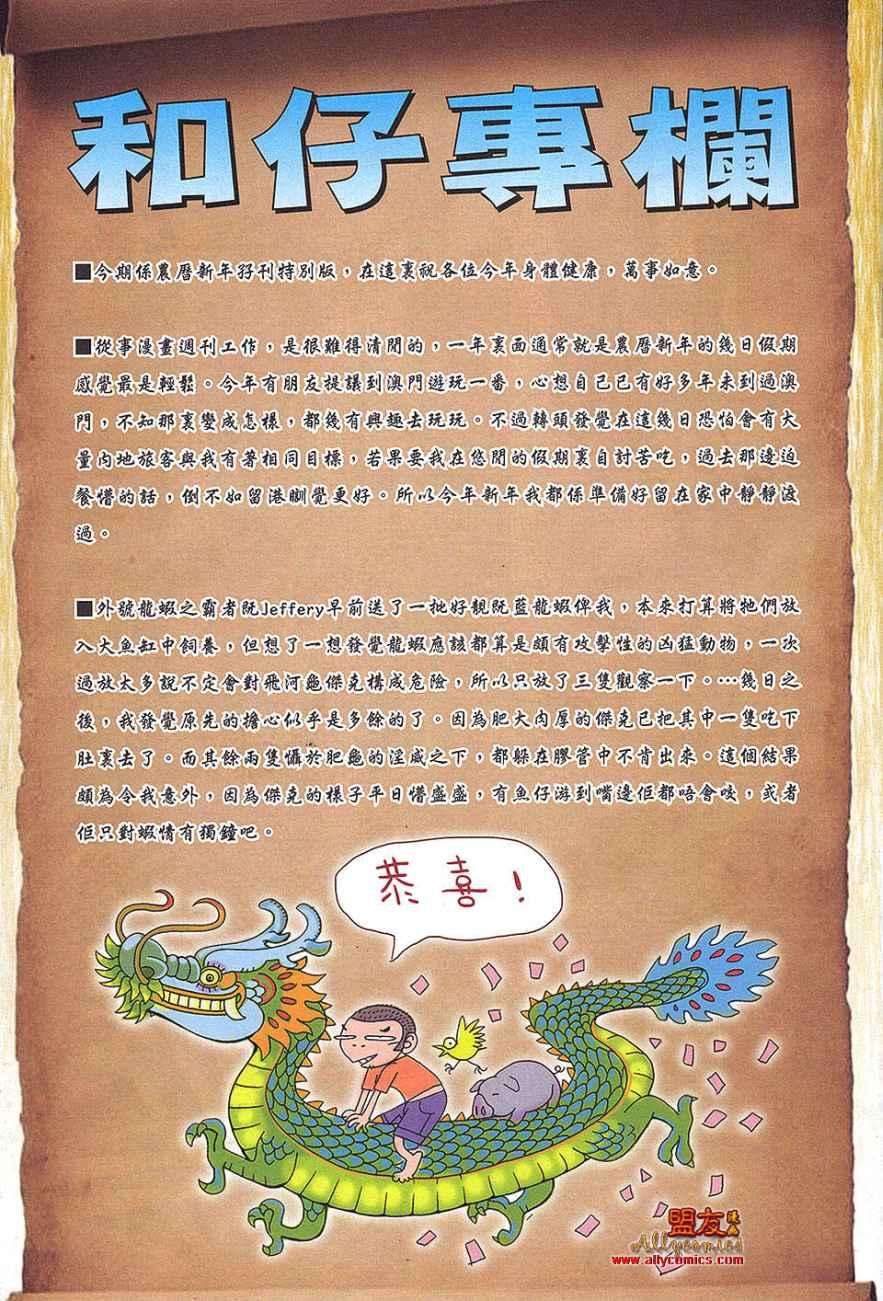 和仔專欄
■今期係農曆新年孖刊特別版，在這裏祝各位今年身體健康，萬事如意。
■從事漫畫週刊工作，是很難得清閒的，一年裏面通常就是農曆新年的幾日假期
感覺最是輕鬆。今年有朋友提議到澳門遊玩一番，心想自己已有好多年未到過澳
門，不知那裏變成怎樣，都幾有興趣去玩玩。不過轉頭發覺在這幾日恐怕會有大
量內地旅客與我有著相同目標，若果要我在悠閒的假期裏自討苦吃，過去那邊迫
餐懵的話，倒不如留港瞓覺更好。所以今年新年我都係準備好留在家中靜靜渡
過。
■外號龍蝦之霸者既Jeffery早前送了一批好靚既藍龍蝦俾我，本來打算將牠們放
入大魚缸中飼養，但想了一想發覺龍蝦應該都算是頗有攻擊性的凶猛動物，一次
過放太多說不定會對飛河龜傑克構成危險，所以只放了三隻觀察一下。…幾日之
後，我發覺原先的擔心似乎是多餘的了。因為肥大肉厚的傑克已把其中一隻吃下
肚裏去了。而其餘兩隻懾於肥龜的淫威之下，都躲在膠管中不肯出來。這個結果
頗為令我意外，因為傑克的樣子平日懵盛盛，有魚仔游到嘴邊佢都唔會咬，或者
佢只對蝦情有獨鐘吧。
恭喜！
盟友漫画
Allycomics
www.allycomics.com